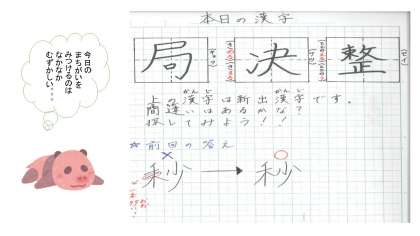 今日の
まちがいを
みつけるのは
なかなか
むずかしい・・・
本日の漢字
局 決 整
上の漢字は新出漢字です。
間違いはあるかな?
探してみよう!!
☆前回の答え
× ○
秒 → 秒